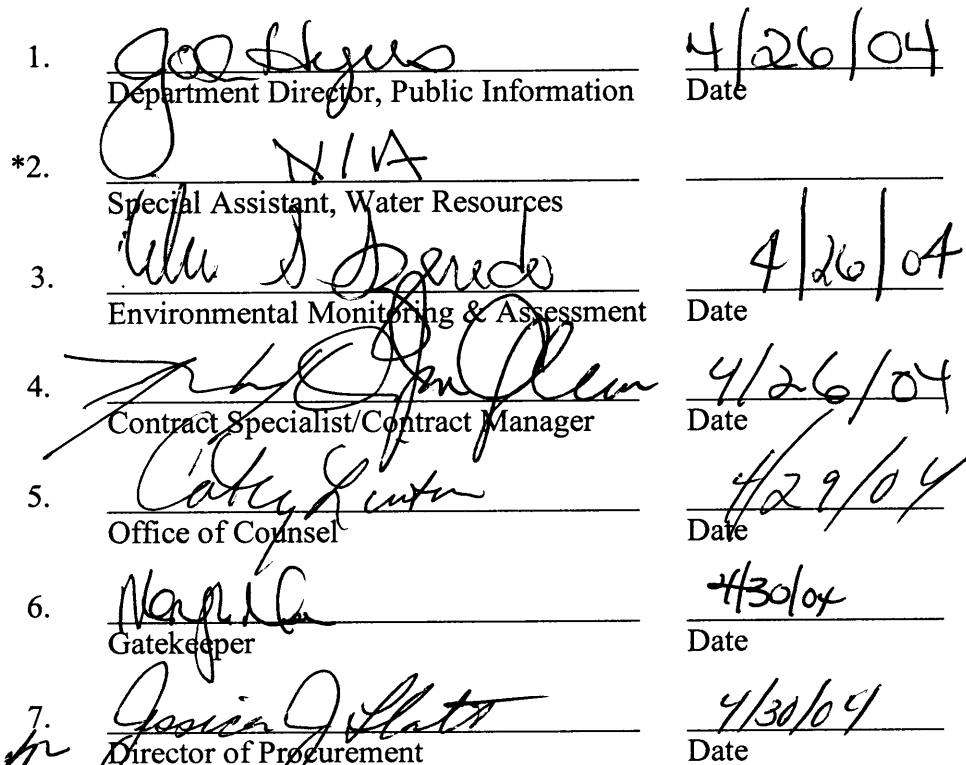 1. 4/26/04
Department Director, Public Information Date
*2. N/A
Special Assistant, Water Resources
3. 4/26/04
Environmental Monitoring & Assessment Date
4. 4/26/04
Contract Specialist/Contract Manager Date
5. Cathy Linton 4/29/04
Office of Counsel Date
6. 4/30/04
Gatekeeper Date
7. Jessica J. 4/30/04
Director of Procurement Date